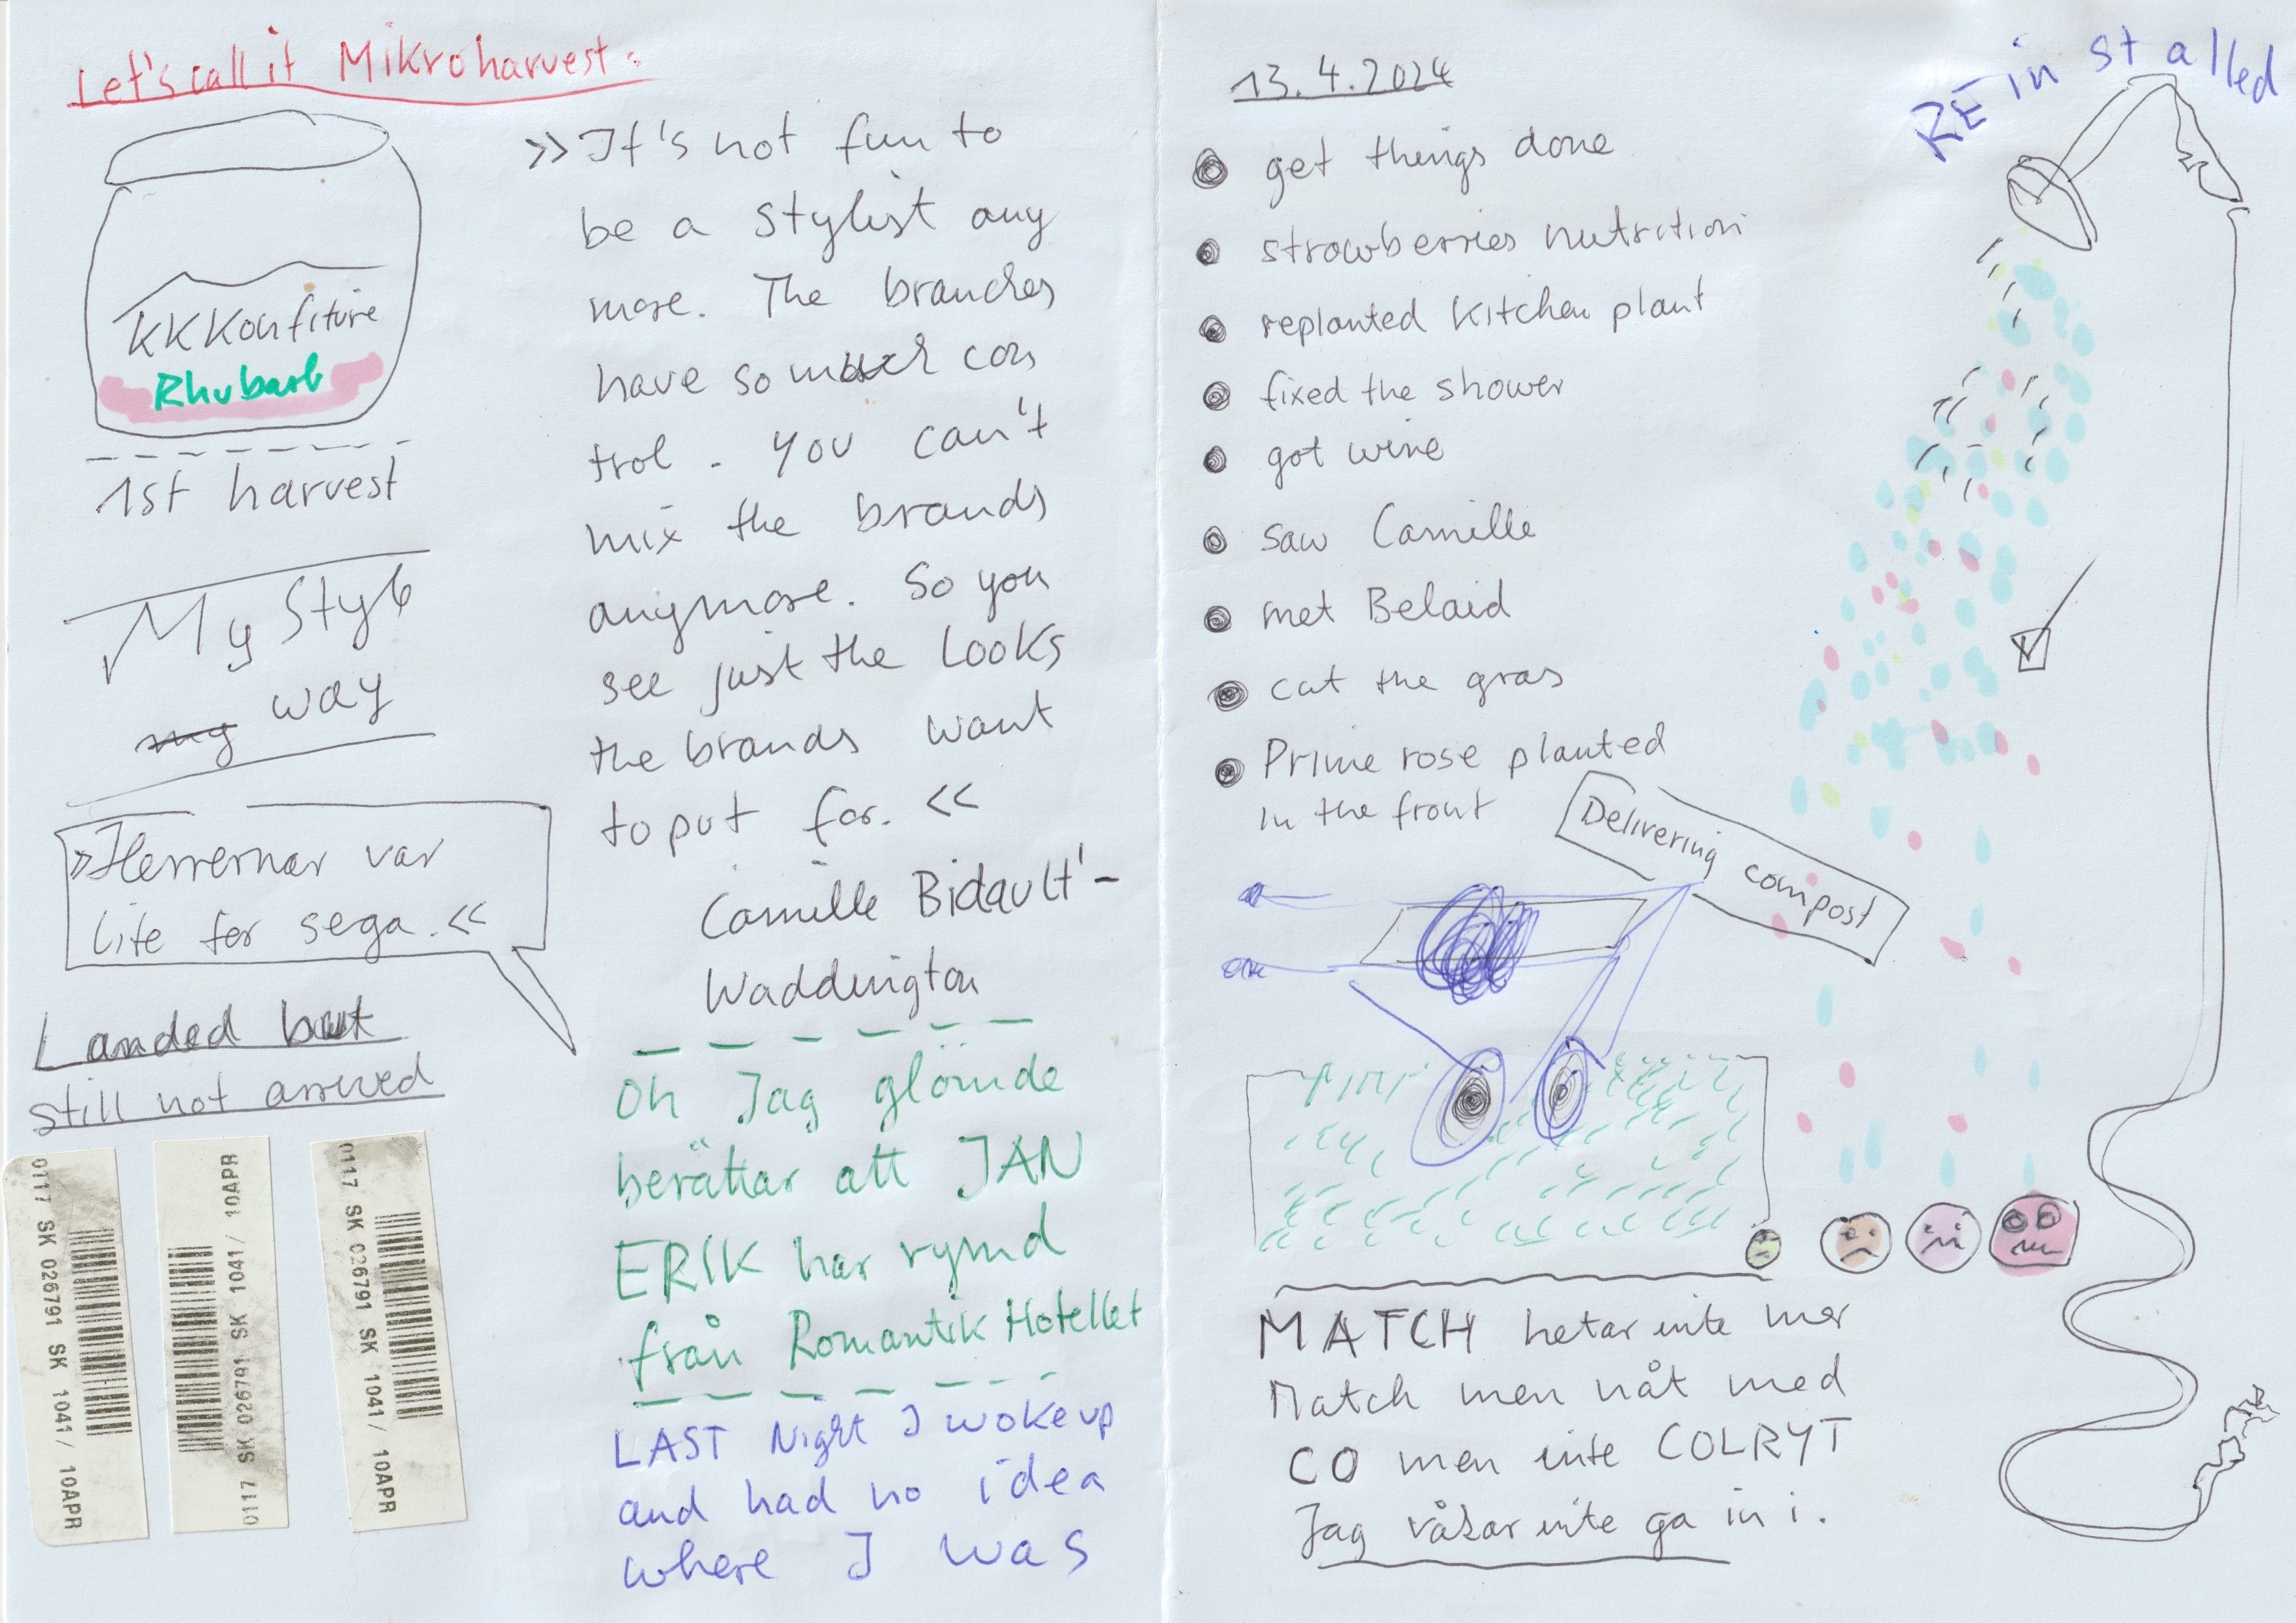 Let's call it Mikroharvest:
KKKonfitüre
Rhubarb
1st harvest
My Style
my way
»Herrernar var
lite for sega.«
Landed but
still not arrived
0117 SK 026791 SK 1041/ 10APR
0117 SK 026791 SK 1041/ 10APR
0117 SK 026791 SK 1041/ 10APR
»It's not fun to
be a stylist any
more. The branches
have so much con
trol. You can't
mix the brands
anymore. So you
see just the Looks
the brands want
to put for.«
Camille Bidault'-
Waddington
Oh Jag glömde
berättar att JAN
ERIK har rymd
från Romantik Hotellet
LAST Night I woke up
and had no idea
where I was
13.4.2024
REinstalled
get things done
strawberries nutrition
replanted Kitchen plant
fixed the shower
got wine
saw Camille
met Belaid
cut the gras
Prime rose planted
in the front
Delivering compost
MATCH hetar inte mer
Match men nåt med
CO men inte COLRYT
Jag vågar inte ga in i.